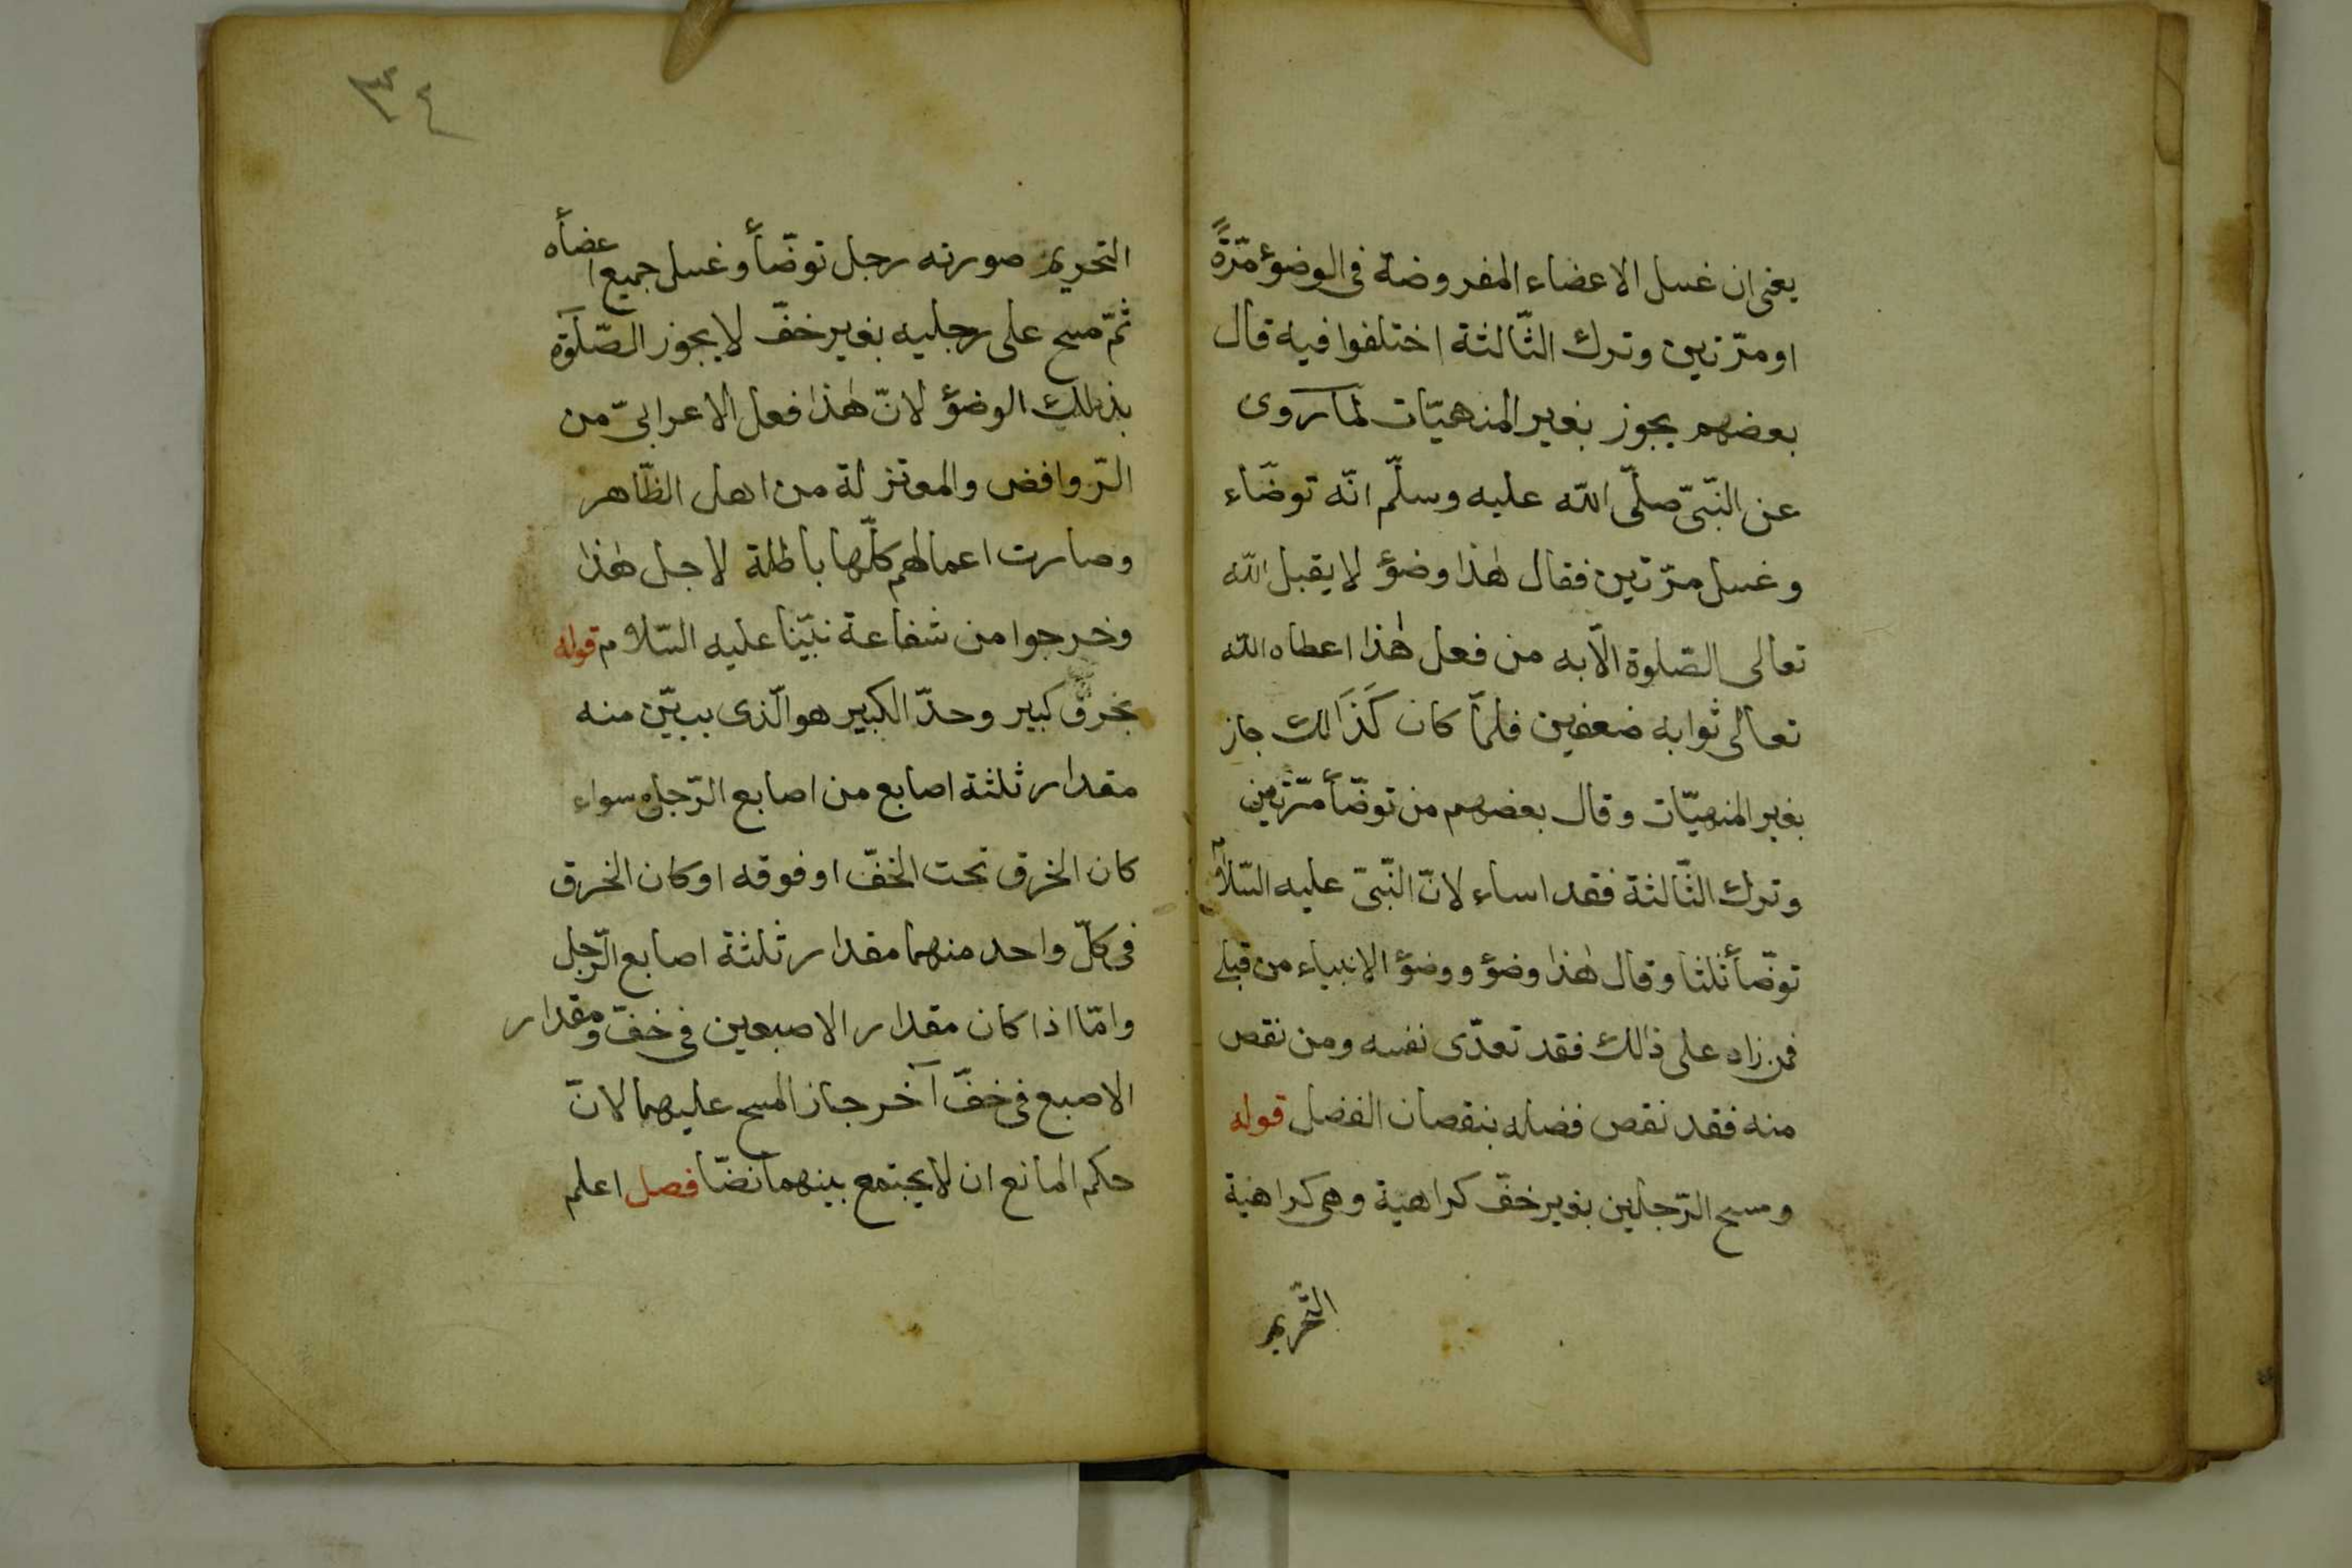 يعنى ان غسل الاعضاء المفروضة فى الوضؤ مرّةً
او مرّتين وترك الثّالثة اختلفوا فيه قال
بعضهم يجوز بغير المنهيّات لما روى
عن النّبىّ صلّى اللّه عليه وسلّم انّه توضّاء
وغسل مرّتين فقال هٰذا وضؤ لا يقبل اللّه
تعالى الصّلوة الّا به من فعل هٰذا اعطاه اللّه
تعالى ثوابه ضعفين فلمّا كان كَذَالك جاز
بغير المنهيّات وقال بعضهم من توضّأ مرّتين
وترك الثّالثة فقد اساء لانّ النّبىّ عليه السّلام
توضّأ ثلثا وقال هٰذا وضؤ ووضؤ الانبياء من قبلى
فمن زاد على ذٰلك فقد تعدّى نفسه ومن نقص
منه فقد نقص فضله بنقصان الفضل قوله
ومسح الرّجلين بغير خفّ كراهية وهى كراهية
التّحريم
٣٤
التحريم صورته رجل توضّأ وغسل جميع اعضأه
ثمّ مسح على رجليه بغير خفّ لا يجوز الصّلٰوة
بذٰلك الوضؤ لانّ هٰذا فعل الاعرابىّ من
الرّوافض والمعتزلة من اهل الظّاهر
وصارت اعمالهم كلّها باطلة لاجل هٰذا
وخرجوا من شفاعة نبيّنا عليه السّلام قوله
بخرق كبير وحدّ الكبير هو الّذى يبيّن منه
مقدار ثلثة اصابع من اصابع الرّجل سواء
كان الخرق تحت الخفّ او فوقه او كان الخرق
فى كلّ واحد منهما مقدار ثلثة اصابع الرّجل
وامّا اذا كان مقدار الاصبعين فى خفّ ومقدار
الاصبع فى خفّ آخر جاز المسح عليهما لانّ
حكم المانع ان لا يجتمع بينهما نصّا فصل اعلم